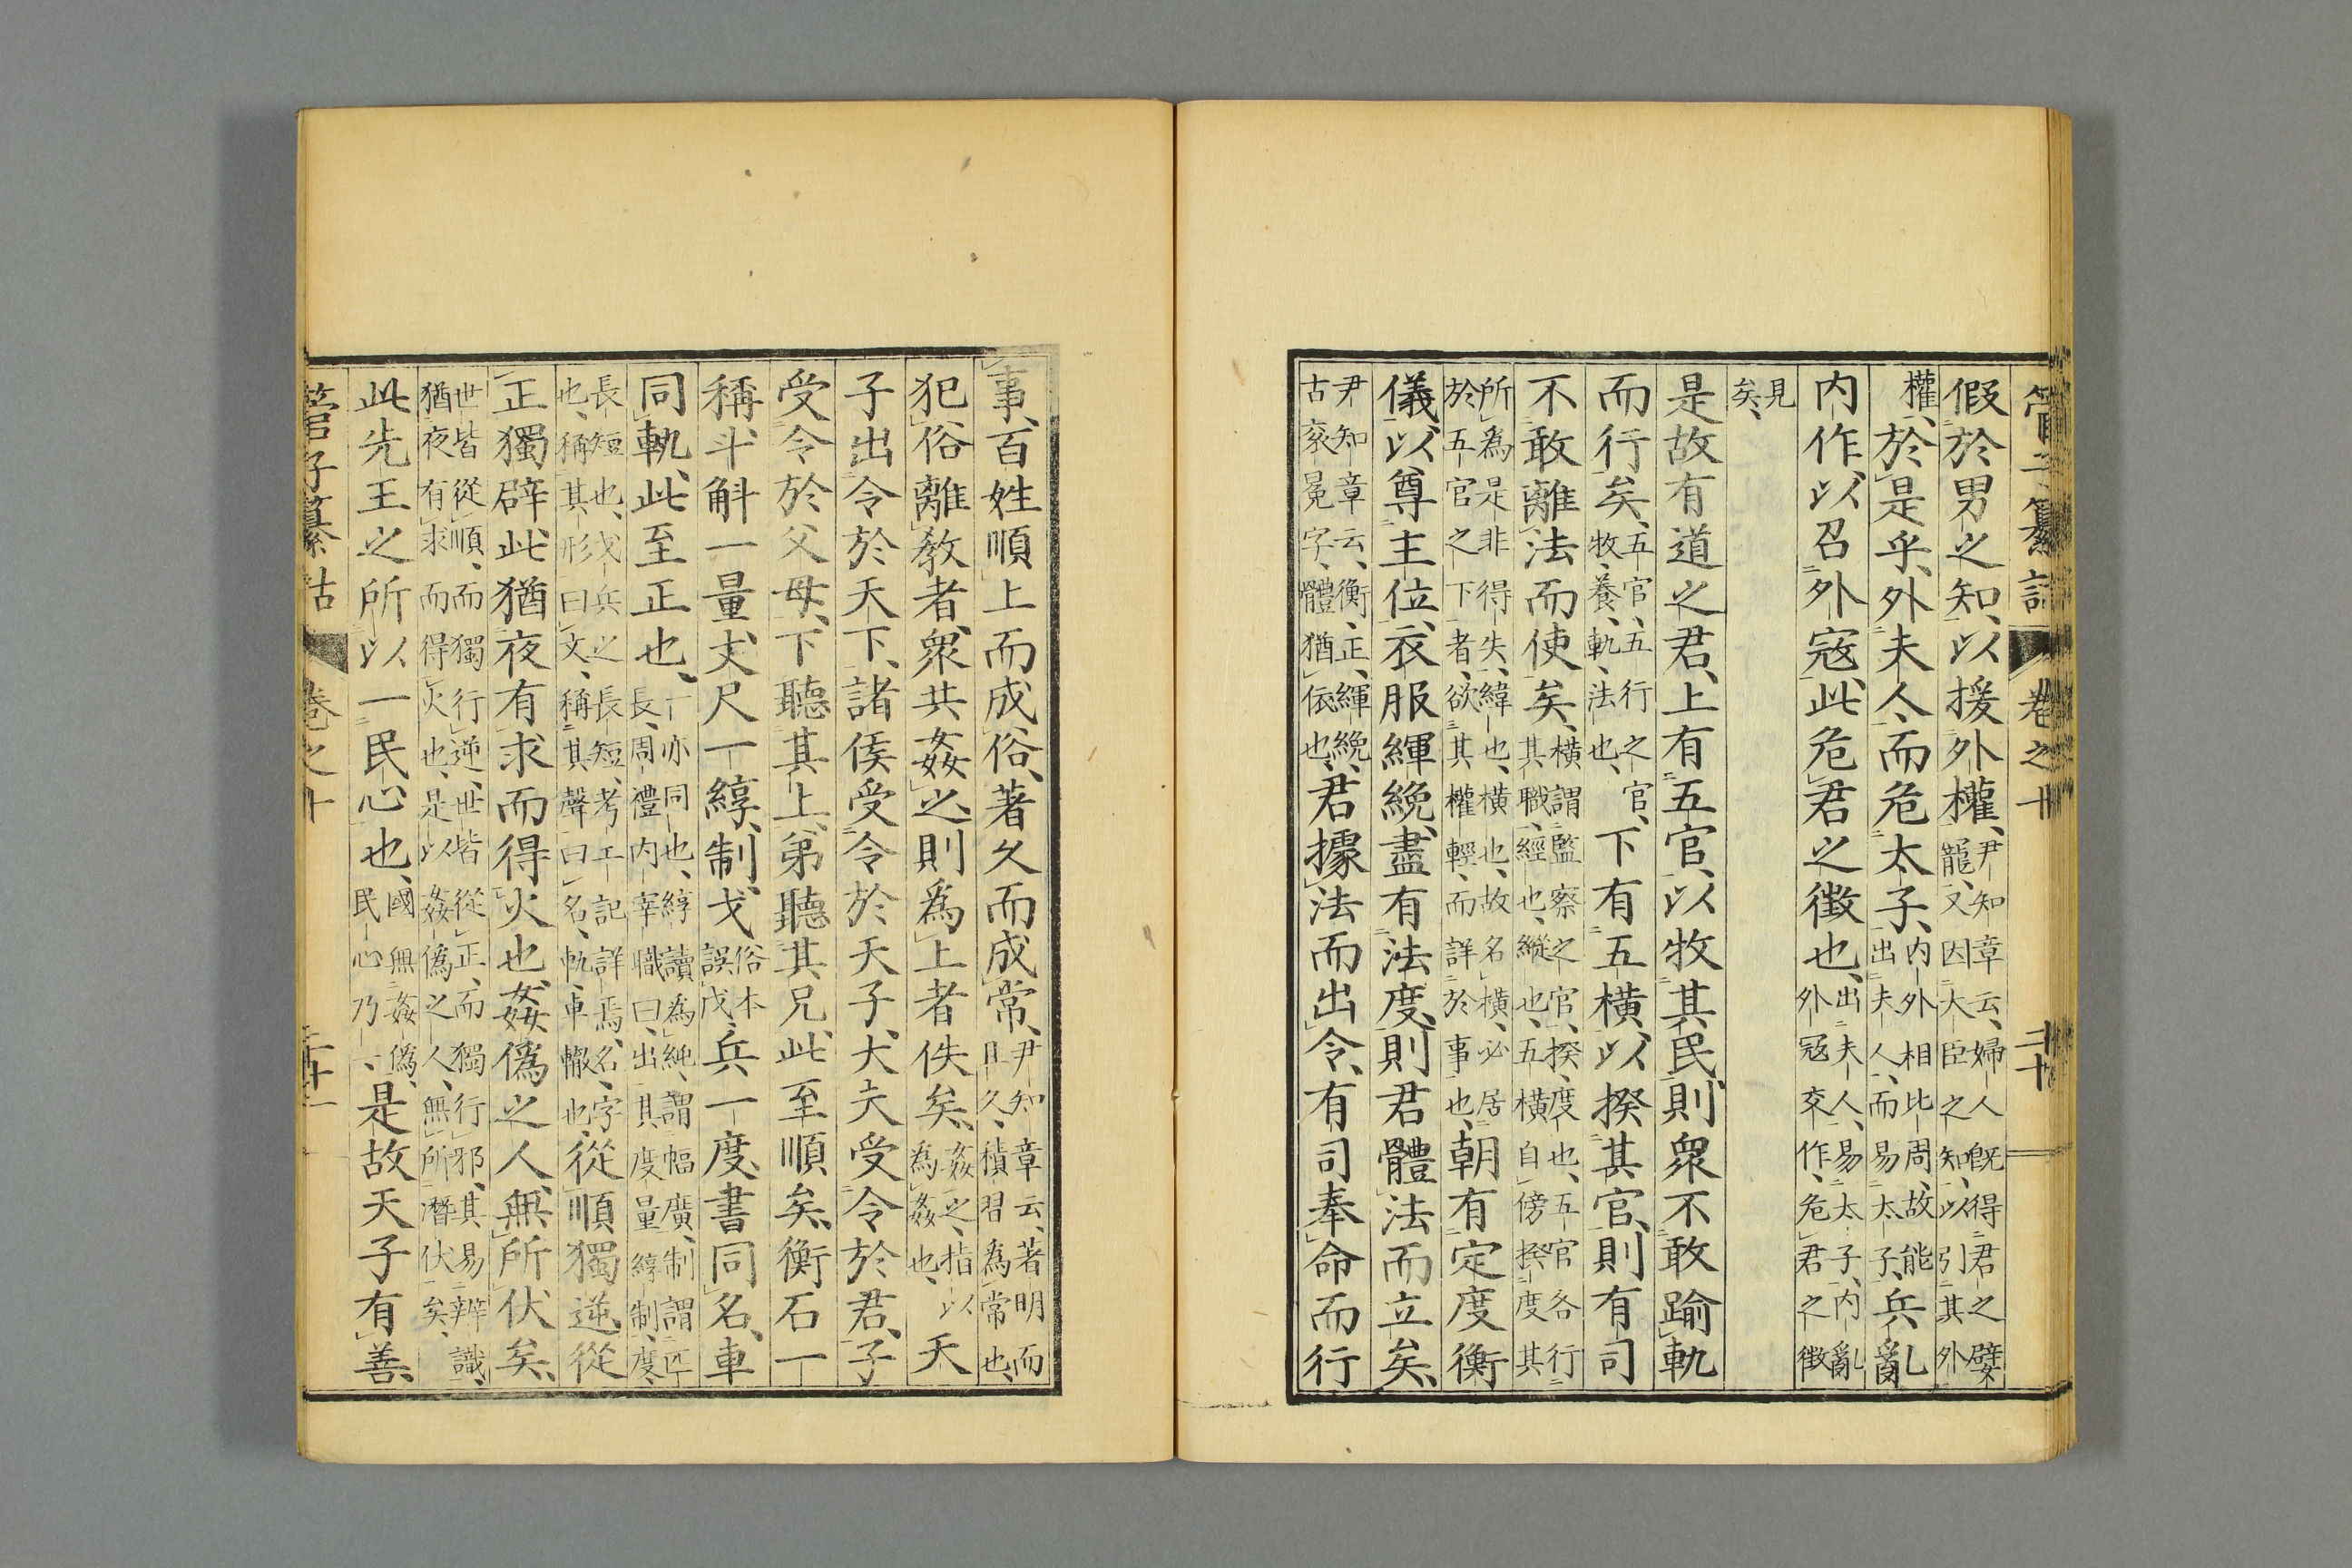 管子纂詁 卷之十 二十
假於男之知、以援外權、尹知章云、婦人既得君之嬖寵、又因大臣之知、以引其外
權、於是乎、外夫人、而危太子、内外相比周、故能出夫人、而易太子、兵亂
内作、以召外寇、此危君之徵也、出夫人、易太子、内亂外寇交作、危君之徵
見矣、
是故有道之君、上有五官、以牧其民、則衆不敢踰軌
而行矣、五官、五行之官、牧、養、軌、法也、下有五橫、以揆其官、則有司
不敢離法而使矣、橫謂監察之官、揆、度也、五官各行其職、經也、縱也、五橫自傍揆度其
所爲是非得失、緯也、橫也、故名橫、必居於五官之下者、欲其權輕、而詳於事也、朝有定度衡
儀、以尊主位、衣服緷絻、盡有法度、則君體法而立矣、
尹知章云、衡、正、緷絻、古衮冕字、體猶依也、君據法而出令、有司奉命而行
事、百姓順上而成俗、著久而成常、尹知章云、著明而且久、積習爲常也、
犯俗離教者、衆共姦之、則爲上者佚矣、姦之、指以爲姦也、天
子出令於天下、諸侯受令於天子、大夫受令於君、子
受令於父母、下聽其上、弟聽其兄、此至順矣、衡石一
稱、斗斛一量、丈尺一綧、制、戈俗本誤戊、兵一度、書同名、車
同軌、此至正也、一亦同也、綧讀爲純、謂幅廣、制謂匹長、周禮内宰職曰、出其度量綧制、度、
長短也、戈兵之長短、考工記詳焉、名、字也、稱其形曰文、稱其聲曰名、軌、車轍也、從順獨逆、從
正獨辟、此猶夜有求而得火也、姦僞之人、無所伏矣、
世皆從順、而獨行逆、世皆從正、而獨行邪、其易辨識、猶夜有求而得火也、是以姦僞之人、無所潛伏矣、
此先王之所以一民心也、國無姦僞、民心乃一、是故天子有善、
管子纂詁 卷之十 二十一